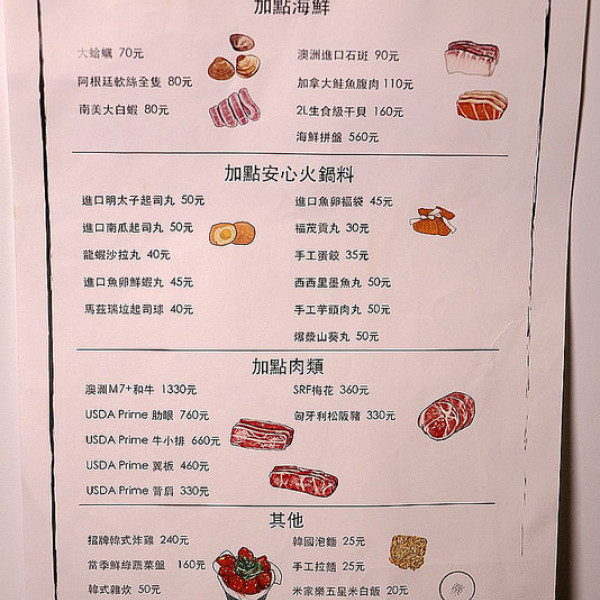 加點海鮮
大蛤蠣 70元
阿根廷軟絲全隻 80元
南美大白蝦 80元
澳洲進口石斑 90元
加拿大鮭魚腹肉 110元
2L生食級干貝 160元
海鮮拼盤 560元
加點安心火鍋料
進口明太子起司丸 50元
進口南瓜起司丸 50元
龍蝦沙拉丸 40元
進口魚卵鮮蝦丸 45元
馬茲瑞垃起司球 40元
進口魚卵福袋 45元
福茂貢丸 30元
手工蛋餃 35元
西西里墨魚丸 50元
手工芋頭肉丸 50元
爆漿山葵丸 50元
加點肉類
澳洲M7+和牛 1330元
USDA Prime 肋眼 760元
USDA Prime 牛小排 660元
USDA Prime 翼板 460元
USDA Prime 背肩 330元
SRF梅花 360元
匈牙利松阪豬 330元
其他
招牌韓式炸雞 240元
當季鮮綠蔬菜盤 160元
韓式雜炊 50元
韓國泡麵 25元
手工拉麵 25元
米家樂五星米白飯 20元